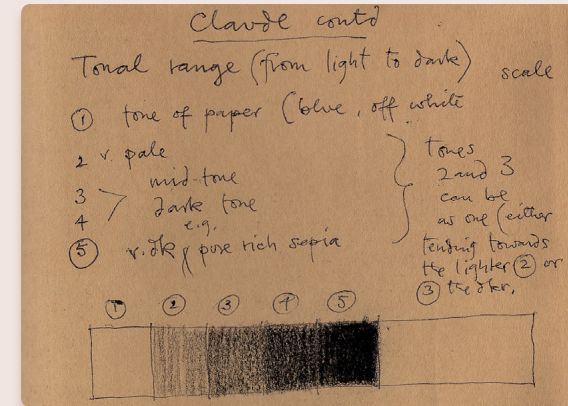 Claude contd
Tonal range (from light to dark) scale
① tone of paper (blue, off white
2 v. pale
3 mid-tone
4 dark tone
e.g.
⑤ v. dk pure rich sepia
tones
2 and 3
can be
as one (either
tending towards
the lighter ② or
③ the dker.
① ② ③ ④ ⑤